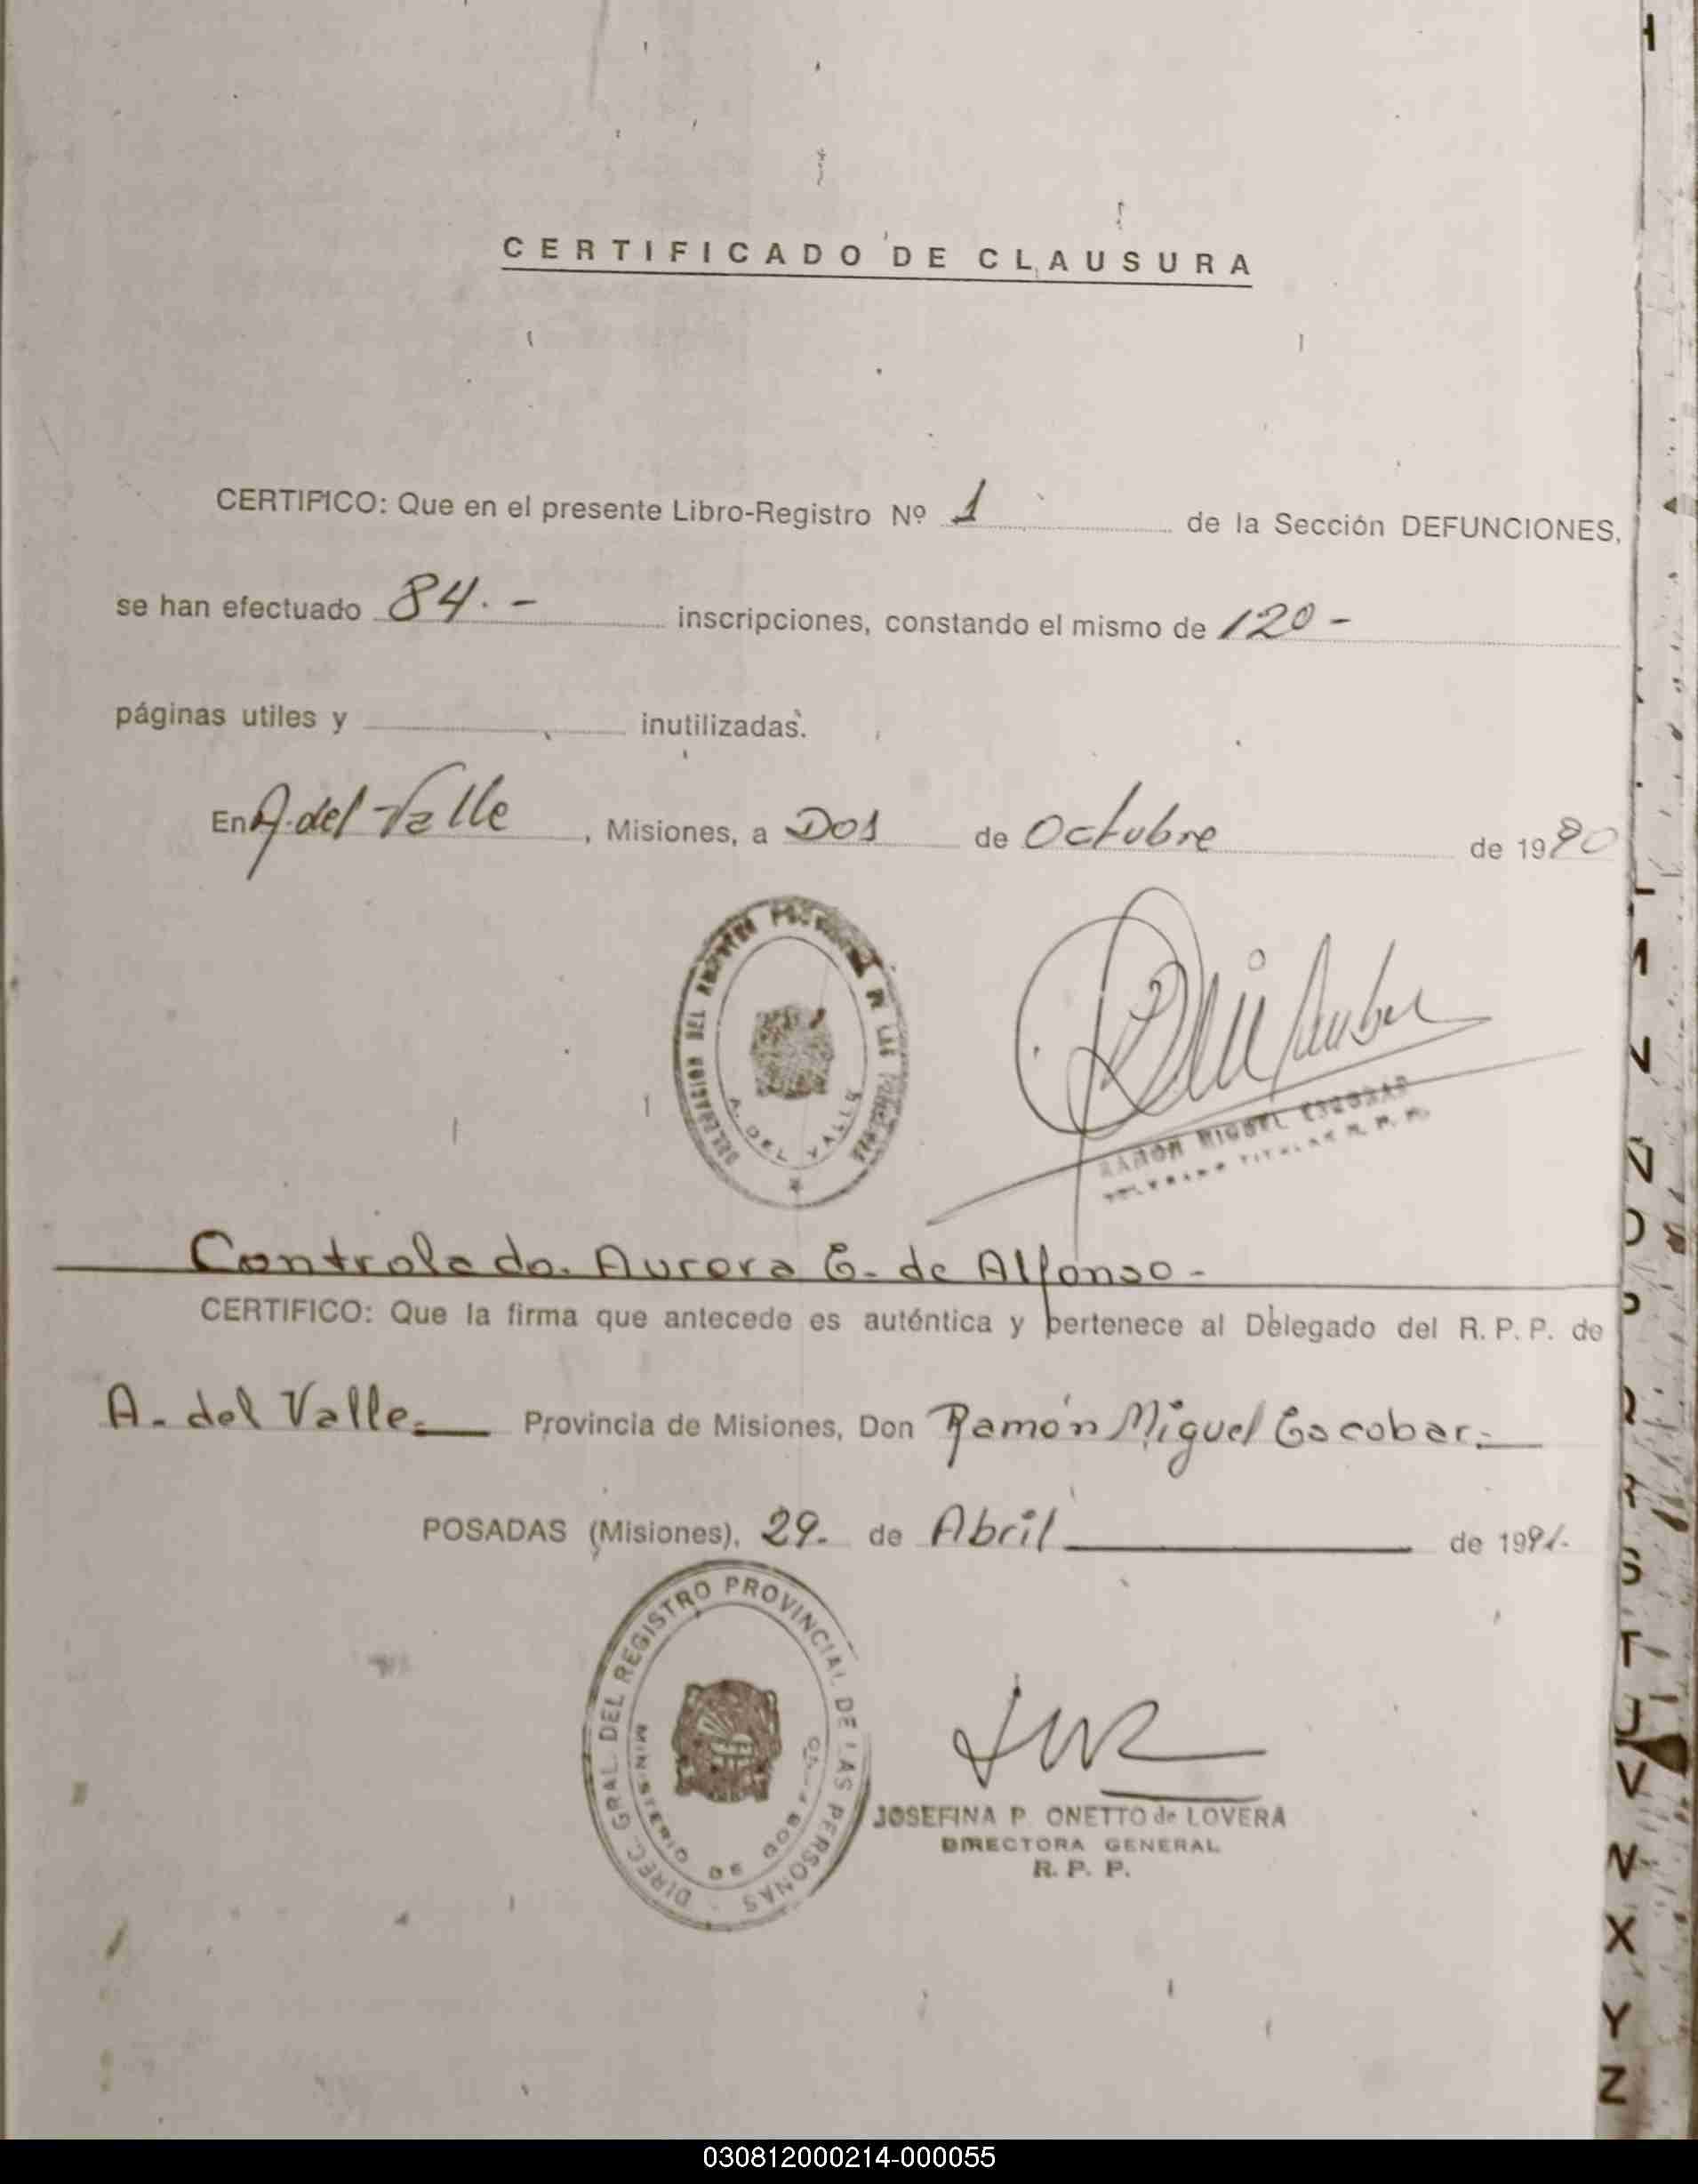 CERTIFICADO DE CLAUSURA
CERTIFICO: Que en el presente Libro-Registro Nº 1 de la Sección DEFUNCIONES,
se han efectuado 84.- inscripciones, constando el mismo de 120-
páginas utiles y inutilizadas.
En A. del Valle, Misiones, a Dos de Octubre de 1980
DELEGACION DEL REGISTRO PROVINCIAL DE LAS PERSONAS
A. DEL VALLE
RAMON MIGUEL ESCOBAR
TITULAR R. P. P.
Controlado. Aurora E. de Alfonso-
CERTIFICO: Que la firma que antecede es auténtica y pertenece al Delegado del R. P. P. de
A. del Valle.- Provincia de Misiones, Don Ramón Miguel Escobar.-
POSADAS (Misiones), 29. de Abril de 1981.
DIREC. GRAL. DEL REGISTRO PROVINCIAL DE LAS PERSONAS
MINISTERIO DE GOBIERNO
JOSEFINA P. ONETTO de LOVERA
DIRECTORA GENERAL
R. P. P.
S
T
V
X
Y
Z
030812000214-000055